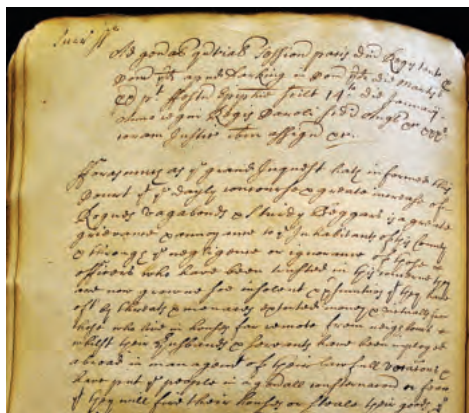 Surr ss
Ad gen'al quarteial Session pacis Dni Regis tent
Com' p'd apud Dorking in Com' p'd die Martis
p't ffestu Epiphie scilt 14th die January
Anno regni Regis Caroli s'c'di Angl &c
coram Justic' &c.
fforasmuch as ye grand Inquest hath informed this
Court yt ye dayly concourse & greate increase of
Rogues Vagabonds & Sturdy Beggars is a greate
grievance & annoyance to ye Inhabitants of this County
& through ye negligence or ignorance of those
officers who have been intrusted in this concerne they
are now growne soe insolent & presumtious yt they have
oft by threats & menaces extorted money & victualls from
those who live in houses far remote from neighbours
whilst their Husbands & Servants have been imployed
abroad in managemt of their lawfull vocations &
have put ye people in a gen'all consternacon or feare
yt they will fire their houses or steale their goods